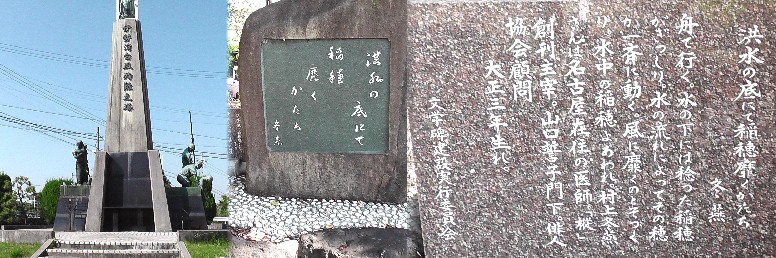 伊勢湾台風殉難之塔
洪水の
底にて
稲穂
靡く
かたち
冬燕
洪水の底にて稲穂靡くかたち
冬燕
舟で行く、水の下には稔った稲穂
がぎっしり、水の流れによってその穂
が一斉に動く。「風に靡く」のとそっく
り、水中の稲穂、あわれ、村上冬燕
さんは名古屋在住の医師。「樅」
創刊主宰。山口誓子門下、俳人
協会顧問
大正三年生れ
文学碑建設実行委員会